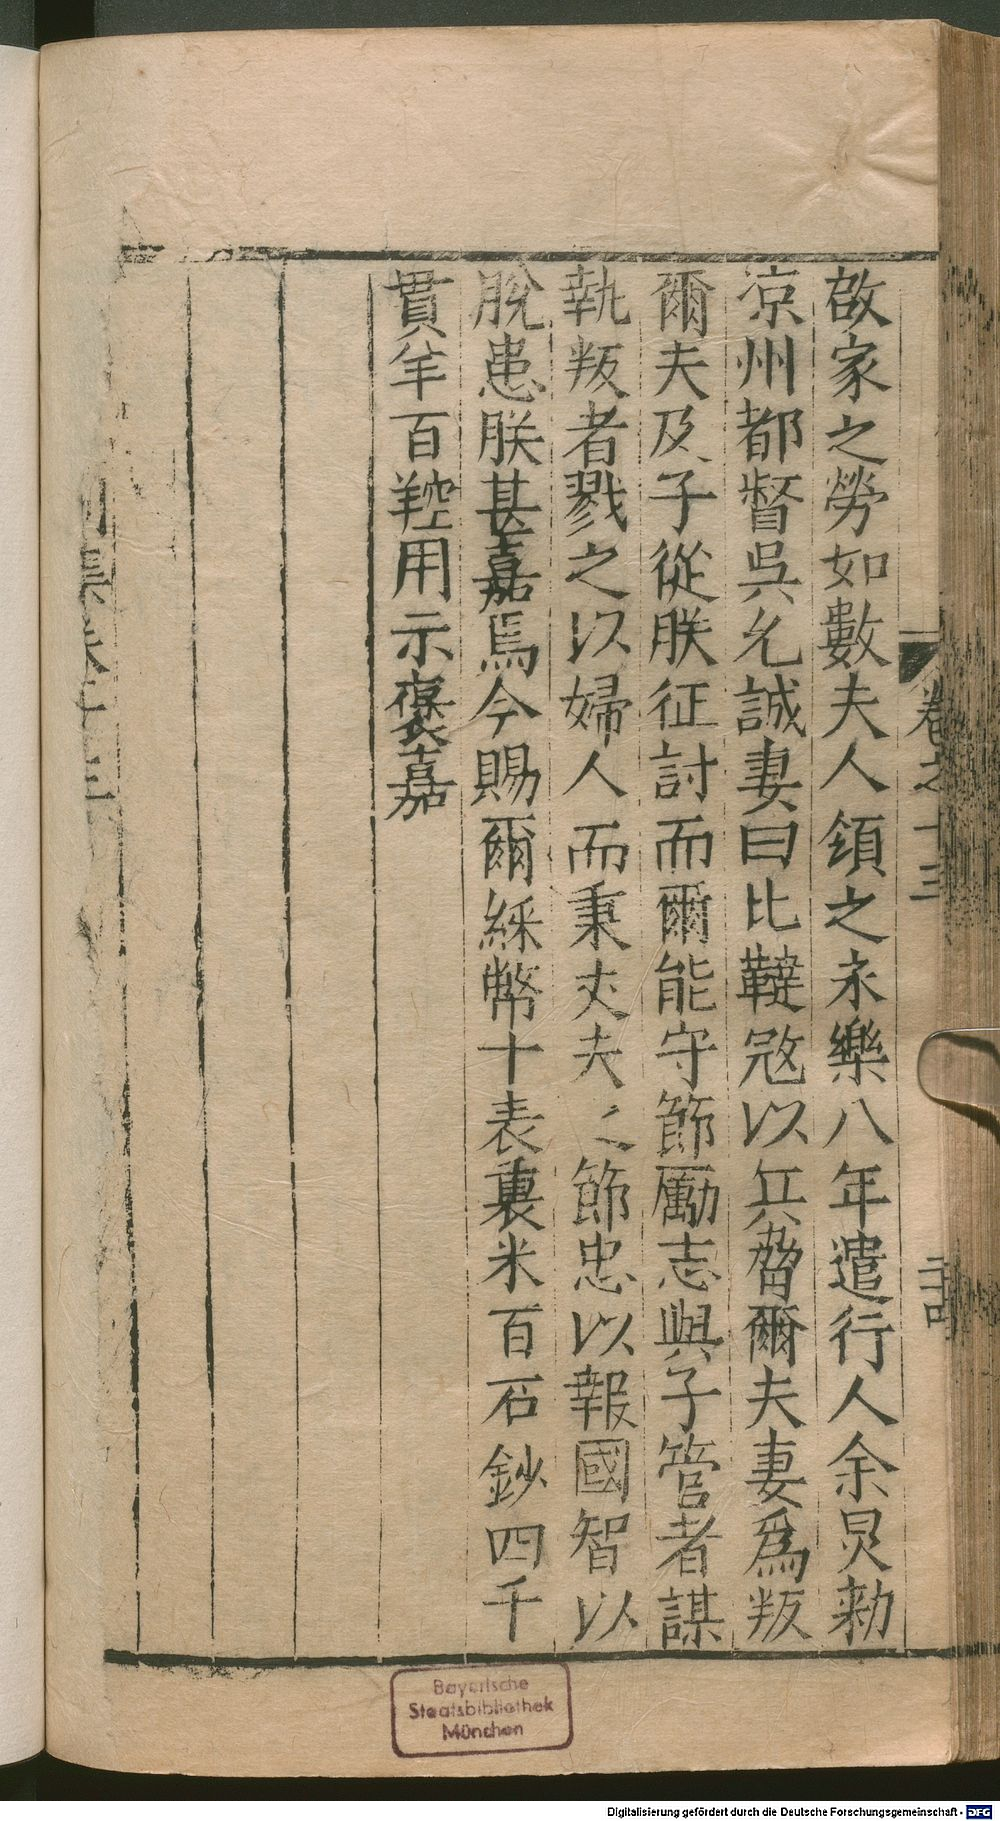 故家之勞如數夫人領之永樂八年遣行人余炅勑
凉州都督吳允誠妻曰比韃宼以兵脅爾夫妻爲叛
爾夫及子從朕征討而爾能守節勵志與子管者謀
執叛者戮之以婦人而秉丈夫之節忠以報國智以
脫患朕甚嘉焉今賜爾綵幣十表裏米百石鈔四千
貫羊百羫用示褒嘉
卷之十三
二十四
Bayerische
Staatsbibliothek
München
Digitalisierung gefördert durch die Deutsche Forschungsgemeinschaft - DFG